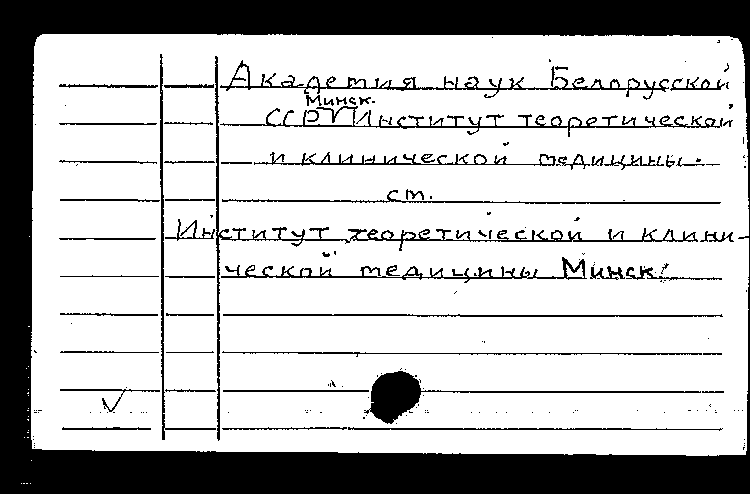 Академия наук Белорусской
Минск.
ССР Институт теоретической
и клинической медицины.
ст.
Институт теоретической и клини-
ческой медицины Минск.